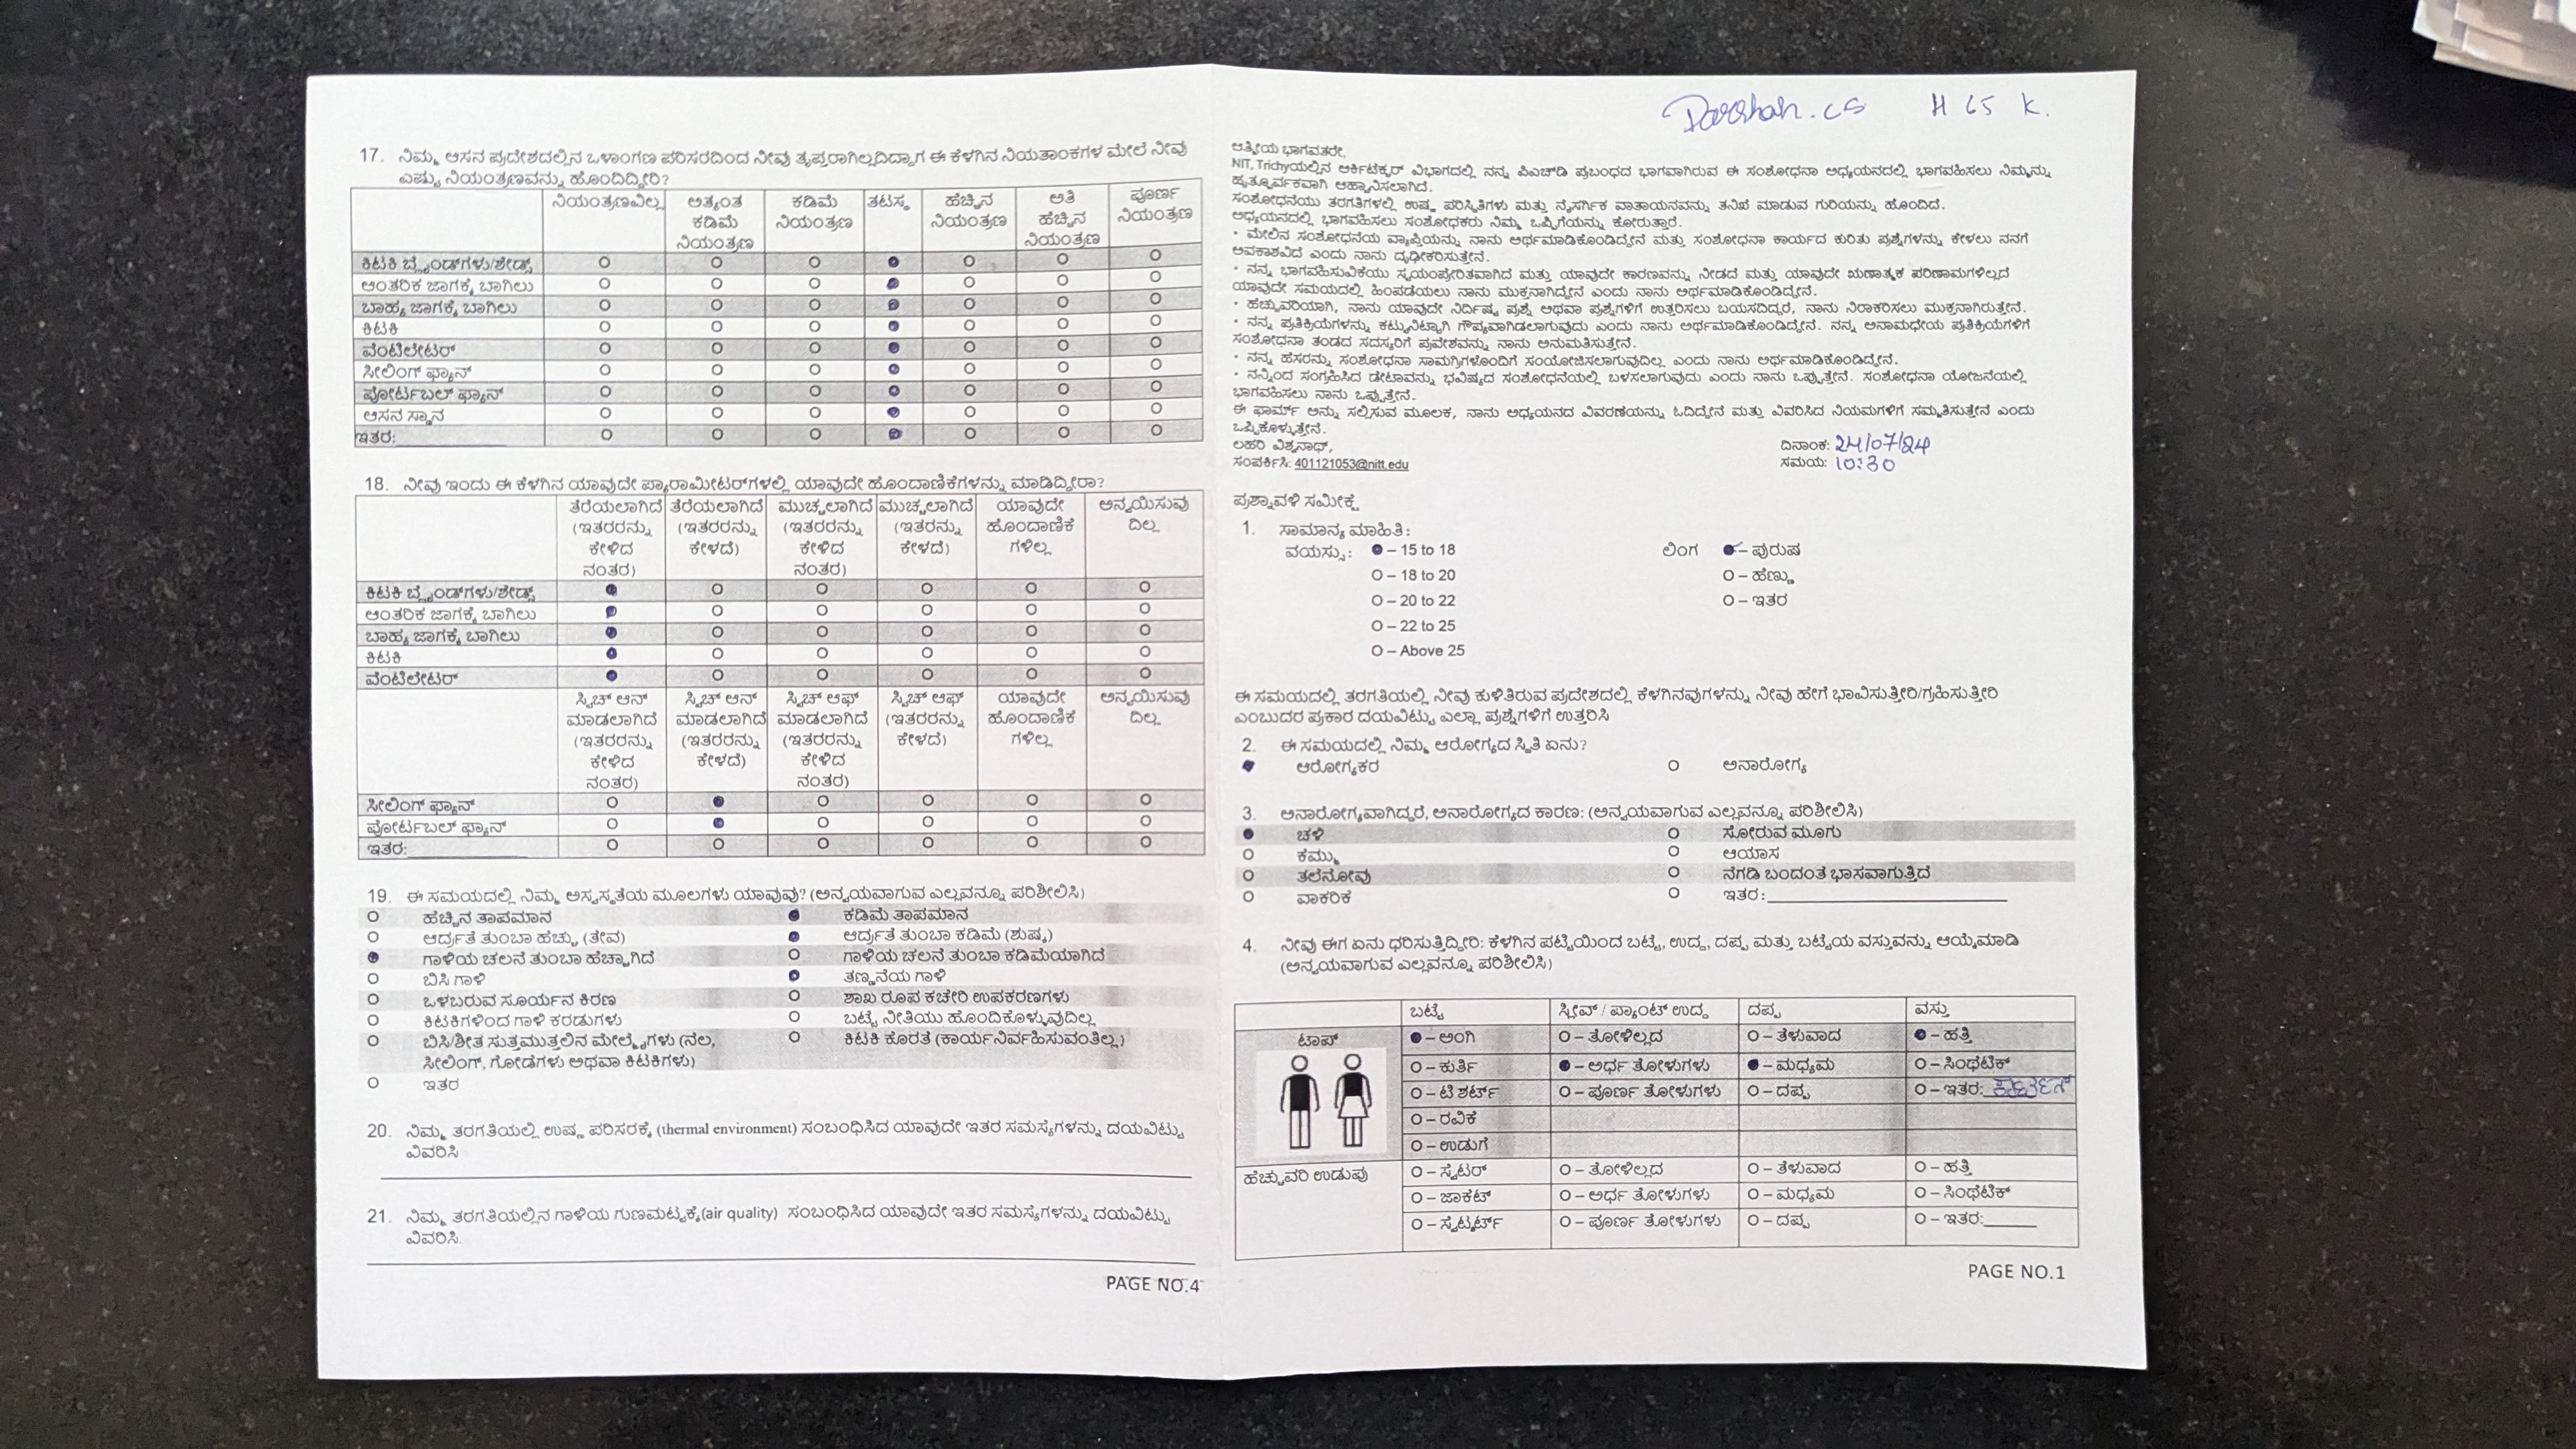 17. ನಿಮ್ಮ ಆಸನ ಪ್ರದೇಶದಲ್ಲಿನ ಒಳಾಂಗಣ ಪರಿಸರದಿಂದ ನೀವು ತೃಪ್ತರಾಗಿಲ್ಲದಿದ್ದಾಗ ಈ ಕೆಳಗಿನ ನಿಯತಾಂಕಗಳ ಮೇಲೆ ನೀವು
ಎಷ್ಟು ನಿಯಂತ್ರಣವನ್ನು ಹೊಂದಿದ್ದೀರಿ?
ನಿಯಂತ್ರಣವಿಲ್ಲ ಅತ್ಯಂತ ಕಡಿಮೆ ನಿಯಂತ್ರಣ ಕಡಿಮೆ ನಿಯಂತ್ರಣ ತಟಸ್ಥ ಹೆಚ್ಚಿನ ನಿಯಂತ್ರಣ ಅತಿ ಹೆಚ್ಚಿನ ನಿಯಂತ್ರಣ ಪೂರ್ಣ ನಿಯಂತ್ರಣ
ಕಿಟಕಿ ಬ್ಲೈಂಡ್‌ಗಳು/ಶೇಡ್ಸ್
ಆಂತರಿಕ ಜಾಗಕ್ಕೆ ಬಾಗಿಲು
ಬಾಹ್ಯ ಜಾಗಕ್ಕೆ ಬಾಗಿಲು
ಕಿಟಕಿ
ವೆಂಟಿಲೇಟರ್
ಸೀಲಿಂಗ್ ಫ್ಯಾನ್
ಪೋರ್ಟಬಲ್ ಫ್ಯಾನ್
ಆಸನ ಸ್ಥಾನ
ಇತರ:
18. ನೀವು ಇಂದು ಈ ಕೆಳಗಿನ ಯಾವುದೇ ಪ್ಯಾರಾಮೀಟರ್‌ಗಳಲ್ಲಿ ಯಾವುದೇ ಹೊಂದಾಣಿಕೆಗಳನ್ನು ಮಾಡಿದ್ದೀರಾ?
ತೆರೆಯಲಾಗಿದೆ (ಇತರರನ್ನು ಕೇಳಿದ ನಂತರ) ತೆರೆಯಲಾಗಿದೆ (ಇತರರನ್ನು ಕೇಳದೆ) ಮುಚ್ಚಲಾಗಿದೆ (ಇತರರನ್ನು ಕೇಳಿದ ನಂತರ) ಮುಚ್ಚಲಾಗಿದೆ (ಇತರರನ್ನು ಕೇಳದೆ) ಯಾವುದೇ ಹೊಂದಾಣಿಕೆ ಗಳಿಲ್ಲ ಅನ್ವಯಿಸುವು ದಿಲ್ಲ
ಕಿಟಕಿ ಬ್ಲೈಂಡ್‌ಗಳು/ಶೇಡ್ಸ್
ಆಂತರಿಕ ಜಾಗಕ್ಕೆ ಬಾಗಿಲು
ಬಾಹ್ಯ ಜಾಗಕ್ಕೆ ಬಾಗಿಲು
ಕಿಟಕಿ
ವೆಂಟಿಲೇಟರ್
ಸ್ವಿಚ್ ಆನ್ ಮಾಡಲಾಗಿದೆ (ಇತರರನ್ನು ಕೇಳಿದ ನಂತರ) ಸ್ವಿಚ್ ಆನ್ ಮಾಡಲಾಗಿದೆ (ಇತರರನ್ನು ಕೇಳದೆ) ಸ್ವಿಚ್ ಆಫ್ ಮಾಡಲಾಗಿದೆ (ಇತರರನ್ನು ಕೇಳಿದ ನಂತರ) ಸ್ವಿಚ್ ಆಫ್ (ಇತರರನ್ನು ಕೇಳದೆ) ಯಾವುದೇ ಹೊಂದಾಣಿಕೆ ಗಳಿಲ್ಲ ಅನ್ವಯಿಸುವು ದಿಲ್ಲ
ಸೀಲಿಂಗ್ ಫ್ಯಾನ್
ಪೋರ್ಟಬಲ್ ಫ್ಯಾನ್
ಇತರ:
19. ಈ ಸಮಯದಲ್ಲಿ ನಿಮ್ಮ ಅಸ್ವಸ್ಥತೆಯ ಮೂಲಗಳು ಯಾವುವು? (ಅನ್ವಯವಾಗುವ ಎಲ್ಲವನ್ನೂ ಪರಿಶೀಲಿಸಿ)
ಹೆಚ್ಚಿನ ತಾಪಮಾನ ಕಡಿಮೆ ತಾಪಮಾನ
ಆರ್ದ್ರತೆ ತುಂಬಾ ಹೆಚ್ಚು (ತೇವ) ಆರ್ದ್ರತೆ ತುಂಬಾ ಕಡಿಮೆ (ಶುಷ್ಕ)
ಗಾಳಿಯ ಚಲನೆ ತುಂಬಾ ಹೆಚ್ಚಾಗಿದೆ ಗಾಳಿಯ ಚಲನೆ ತುಂಬಾ ಕಡಿಮೆಯಾಗಿದೆ
ಬಿಸಿ ಗಾಳಿ ತಣ್ಣನೆಯ ಗಾಳಿ
ಒಳಬರುವ ಸೂರ್ಯನ ಕಿರಣ ಶಾಖ ರೂಪ ಕಚೇರಿ ಉಪಕರಣಗಳು
ಕಿಟಕಿಗಳಿಂದ ಗಾಳಿ ಕರಡುಗಳು ಬಟ್ಟೆ ನೀತಿಯು ಹೊಂದಿಕೊಳ್ಳುವುದಿಲ್ಲ
ಬಿಸಿ/ಶೀತ ಸುತ್ತಮುತ್ತಲಿನ ಮೇಲ್ಮೈಗಳು (ನೆಲ, ಕಿಟಕಿ ಕೊರತೆ (ಕಾರ್ಯನಿರ್ವಹಿಸುವಂತಿಲ್ಲ)
ಸೀಲಿಂಗ್, ಗೋಡೆಗಳು ಅಥವಾ ಕಿಟಕಿಗಳು)
ಇತರ
20. ನಿಮ್ಮ ತರಗತಿಯಲ್ಲಿ ಉಷ್ಣ ಪರಿಸರಕ್ಕೆ (thermal environment) ಸಂಬಂಧಿಸಿದ ಯಾವುದೇ ಇತರ ಸಮಸ್ಯೆಗಳನ್ನು ದಯವಿಟ್ಟು
ವಿವರಿಸಿ
21. ನಿಮ್ಮ ತರಗತಿಯಲ್ಲಿನ ಗಾಳಿಯ ಗುಣಮಟ್ಟಕ್ಕೆ(air quality) ಸಂಬಂಧಿಸಿದ ಯಾವುದೇ ಇತರ ಸಮಸ್ಯೆಗಳನ್ನು ದಯವಿಟ್ಟು
ವಿವರಿಸಿ.
PAGE NO.4
Darshan. cs H 65 K.
ಆತ್ಮೀಯ ಭಾಗವತರೇ,
NIT, Trichyಯಲ್ಲಿನ ಆರ್ಕಿಟೆಕ್ಚರ್ ವಿಭಾಗದಲ್ಲಿ ನನ್ನ ಪಿಎಚ್‌ಡಿ ಪ್ರಬಂಧದ ಭಾಗವಾಗಿರುವ ಈ ಸಂಶೋಧನಾ ಅಧ್ಯಯನದಲ್ಲಿ ಭಾಗವಹಿಸಲು ನಿಮ್ಮನ್ನು
ಹೃತ್ಪೂರ್ವಕವಾಗಿ ಆಹ್ವಾನಿಸಲಾಗಿದೆ.
ಸಂಶೋಧನೆಯು ತರಗತಿಗಳಲ್ಲಿ ಉಷ್ಣ ಪರಿಸ್ಥಿತಿಗಳು ಮತ್ತು ನೈಸರ್ಗಿಕ ವಾತಾಯನವನ್ನು ತನಿಖೆ ಮಾಡುವ ಗುರಿಯನ್ನು ಹೊಂದಿದೆ.
ಅಧ್ಯಯನದಲ್ಲಿ ಭಾಗವಹಿಸಲು ಸಂಶೋಧಕರು ನಿಮ್ಮ ಒಪ್ಪಿಗೆಯನ್ನು ಕೋರುತ್ತಾರೆ.
• ಮೇಲಿನ ಸಂಶೋಧನೆಯ ವ್ಯಾಪ್ತಿಯನ್ನು ನಾನು ಅರ್ಥಮಾಡಿಕೊಂಡಿದ್ದೇನೆ ಮತ್ತು ಸಂಶೋಧನಾ ಕಾರ್ಯದ ಕುರಿತು ಪ್ರಶ್ನೆಗಳನ್ನು ಕೇಳಲು ನನಗೆ
ಅವಕಾಶವಿದೆ ಎಂದು ನಾನು ದೃಢೀಕರಿಸುತ್ತೇನೆ.
• ನನ್ನ ಭಾಗವಹಿಸುವಿಕೆಯು ಸ್ವಯಂಪ್ರೇರಿತವಾಗಿದೆ ಮತ್ತು ಯಾವುದೇ ಕಾರಣವನ್ನು ನೀಡದೆ ಮತ್ತು ಯಾವುದೇ ಋಣಾತ್ಮಕ ಪರಿಣಾಮಗಳಿಲ್ಲದೆ
ಯಾವುದೇ ಸಮಯದಲ್ಲಿ ಹಿಂಪಡೆಯಲು ನಾನು ಮುಕ್ತನಾಗಿದ್ದೇನೆ ಎಂದು ನಾನು ಅರ್ಥಮಾಡಿಕೊಂಡಿದ್ದೇನೆ.
• ಹೆಚ್ಚುವರಿಯಾಗಿ, ನಾನು ಯಾವುದೇ ನಿರ್ದಿಷ್ಟ ಪ್ರಶ್ನೆ ಅಥವಾ ಪ್ರಶ್ನೆಗಳಿಗೆ ಉತ್ತರಿಸಲು ಬಯಸದಿದ್ದರೆ, ನಾನು ನಿರಾಕರಿಸಲು ಮುಕ್ತನಾಗಿರುತ್ತೇನೆ.
• ನನ್ನ ಪ್ರತಿಕ್ರಿಯೆಗಳನ್ನು ಕಟ್ಟುನಿಟ್ಟಾಗಿ ಗೌಪ್ಯವಾಗಿಡಲಾಗುವುದು ಎಂದು ನಾನು ಅರ್ಥಮಾಡಿಕೊಂಡಿದ್ದೇನೆ. ನನ್ನ ಅನಾಮಧೇಯ ಪ್ರತಿಕ್ರಿಯೆಗಳಿಗೆ
ಸಂಶೋಧನಾ ತಂಡದ ಸದಸ್ಯರಿಗೆ ಪ್ರವೇಶವನ್ನು ನಾನು ಅನುಮತಿಸುತ್ತೇನೆ.
• ನನ್ನ ಹೆಸರನ್ನು ಸಂಶೋಧನಾ ಸಾಮಗ್ರಿಗಳೊಂದಿಗೆ ಸಂಯೋಜಿಸಲಾಗುವುದಿಲ್ಲ ಎಂದು ನಾನು ಅರ್ಥಮಾಡಿಕೊಂಡಿದ್ದೇನೆ.
• ನನ್ನಿಂದ ಸಂಗ್ರಹಿಸಿದ ಡೇಟಾವನ್ನು ಭವಿಷ್ಯದ ಸಂಶೋಧನೆಯಲ್ಲಿ ಬಳಸಲಾಗುವುದು ಎಂದು ನಾನು ಒಪ್ಪುತ್ತೇನೆ. ಸಂಶೋಧನಾ ಯೋಜನೆಯಲ್ಲಿ
ಭಾಗವಹಿಸಲು ನಾನು ಒಪ್ಪುತ್ತೇನೆ.
ಈ ಫಾರ್ಮ್ ಅನ್ನು ಸಲ್ಲಿಸುವ ಮೂಲಕ, ನಾನು ಅಧ್ಯಯನದ ವಿವರಣೆಯನ್ನು ಓದಿದ್ದೇನೆ ಮತ್ತು ವಿವರಿಸಿದ ನಿಯಮಗಳಿಗೆ ಸಮ್ಮತಿಸುತ್ತೇನೆ ಎಂದು
ಒಪ್ಪಿಕೊಳ್ಳುತ್ತೇನೆ.
ಲಹರಿ ವಿಶ್ವನಾಥ್, ದಿನಾಂಕ: 24/07/24
ಸಂಪರ್ಕಿಸಿ: 401121053@nitt.edu ಸಮಯ: 10:30
ಪ್ರಶ್ನಾವಳಿ ಸಮೀಕ್ಷೆ
1. ಸಾಮಾನ್ಯ ಮಾಹಿತಿ:
ವಯಸ್ಸು: – 15 to 18 ಲಿಂಗ – ಪುರುಷ
O – 18 to 20 O – ಹೆಣ್ಣು
O – 20 to 22 O – ಇತರ
O – 22 to 25
O – Above 25
ಈ ಸಮಯದಲ್ಲಿ ತರಗತಿಯಲ್ಲಿ ನೀವು ಕುಳಿತಿರುವ ಪ್ರದೇಶದಲ್ಲಿ ಕೆಳಗಿನವುಗಳನ್ನು ನೀವು ಹೇಗೆ ಭಾವಿಸುತ್ತೀರಿ/ಗ್ರಹಿಸುತ್ತೀರಿ
ಎಂಬುದರ ಪ್ರಕಾರ ದಯವಿಟ್ಟು ಎಲ್ಲಾ ಪ್ರಶ್ನೆಗಳಿಗೆ ಉತ್ತರಿಸಿ
2. ಈ ಸಮಯದಲ್ಲಿ ನಿಮ್ಮ ಆರೋಗ್ಯದ ಸ್ಥಿತಿ ಏನು?
ಆರೋಗ್ಯಕರ O ಅನಾರೋಗ್ಯ
3. ಅನಾರೋಗ್ಯವಾಗಿದ್ದರೆ, ಅನಾರೋಗ್ಯದ ಕಾರಣ: (ಅನ್ವಯವಾಗುವ ಎಲ್ಲವನ್ನೂ ಪರಿಶೀಲಿಸಿ)
ಚಳಿ O ಸೋರುವ ಮೂಗು
O ಕೆಮ್ಮು O ಆಯಾಸ
O ತಲೆನೋವು O ನೆಗಡಿ ಬಂದಂತೆ ಭಾಸವಾಗುತ್ತಿದೆ
O ವಾಕರಿಕೆ O ಇತರ:
4. ನೀವು ಈಗ ಏನು ಧರಿಸುತ್ತಿದ್ದೀರಿ: ಕೆಳಗಿನ ಪಟ್ಟಿಯಿಂದ ಬಟ್ಟೆ, ಉದ್ದ, ದಪ್ಪ ಮತ್ತು ಬಟ್ಟೆಯ ವಸ್ತುವನ್ನು ಆಯ್ಕೆಮಾಡಿ
(ಅನ್ವಯವಾಗುವ ಎಲ್ಲವನ್ನೂ ಪರಿಶೀಲಿಸಿ)
ಬಟ್ಟೆ ಸ್ಲೀವ್ / ಪ್ಯಾಂಟ್ ಉದ್ದ ದಪ್ಪ ವಸ್ತು
ಟಾಪ್ – ಅಂಗಿ O – ತೋಳಿಲ್ಲದ O – ತೆಳುವಾದ – ಹತ್ತಿ
O – ಕುರ್ತಿ – ಅರ್ಧ ತೋಳುಗಳು – ಮಧ್ಯಮ O – ಸಿಂಥೆಟಿಕ್
O – ಟಿ ಶರ್ಟ್ O – ಪೂರ್ಣ ತೋಳುಗಳು O – ದಪ್ಪ O – ಇತರ:
O – ರವಿಕೆ
O – ಉಡುಗೆ
ಹೆಚ್ಚುವರಿ ಉಡುಪು O – ಸ್ವೆಟರ್ O – ತೋಳಿಲ್ಲದ O – ತೆಳುವಾದ O – ಹತ್ತಿ
O – ಜಾಕೆಟ್ O – ಅರ್ಧ ತೋಳುಗಳು O – ಮಧ್ಯಮ O – ಸಿಂಥೆಟಿಕ್
O – ಸ್ವೆಟ್ಶರ್ಟ್ O – ಪೂರ್ಣ ತೋಳುಗಳು O – ದಪ್ಪ O – ಇತರ:
PAGE NO.1